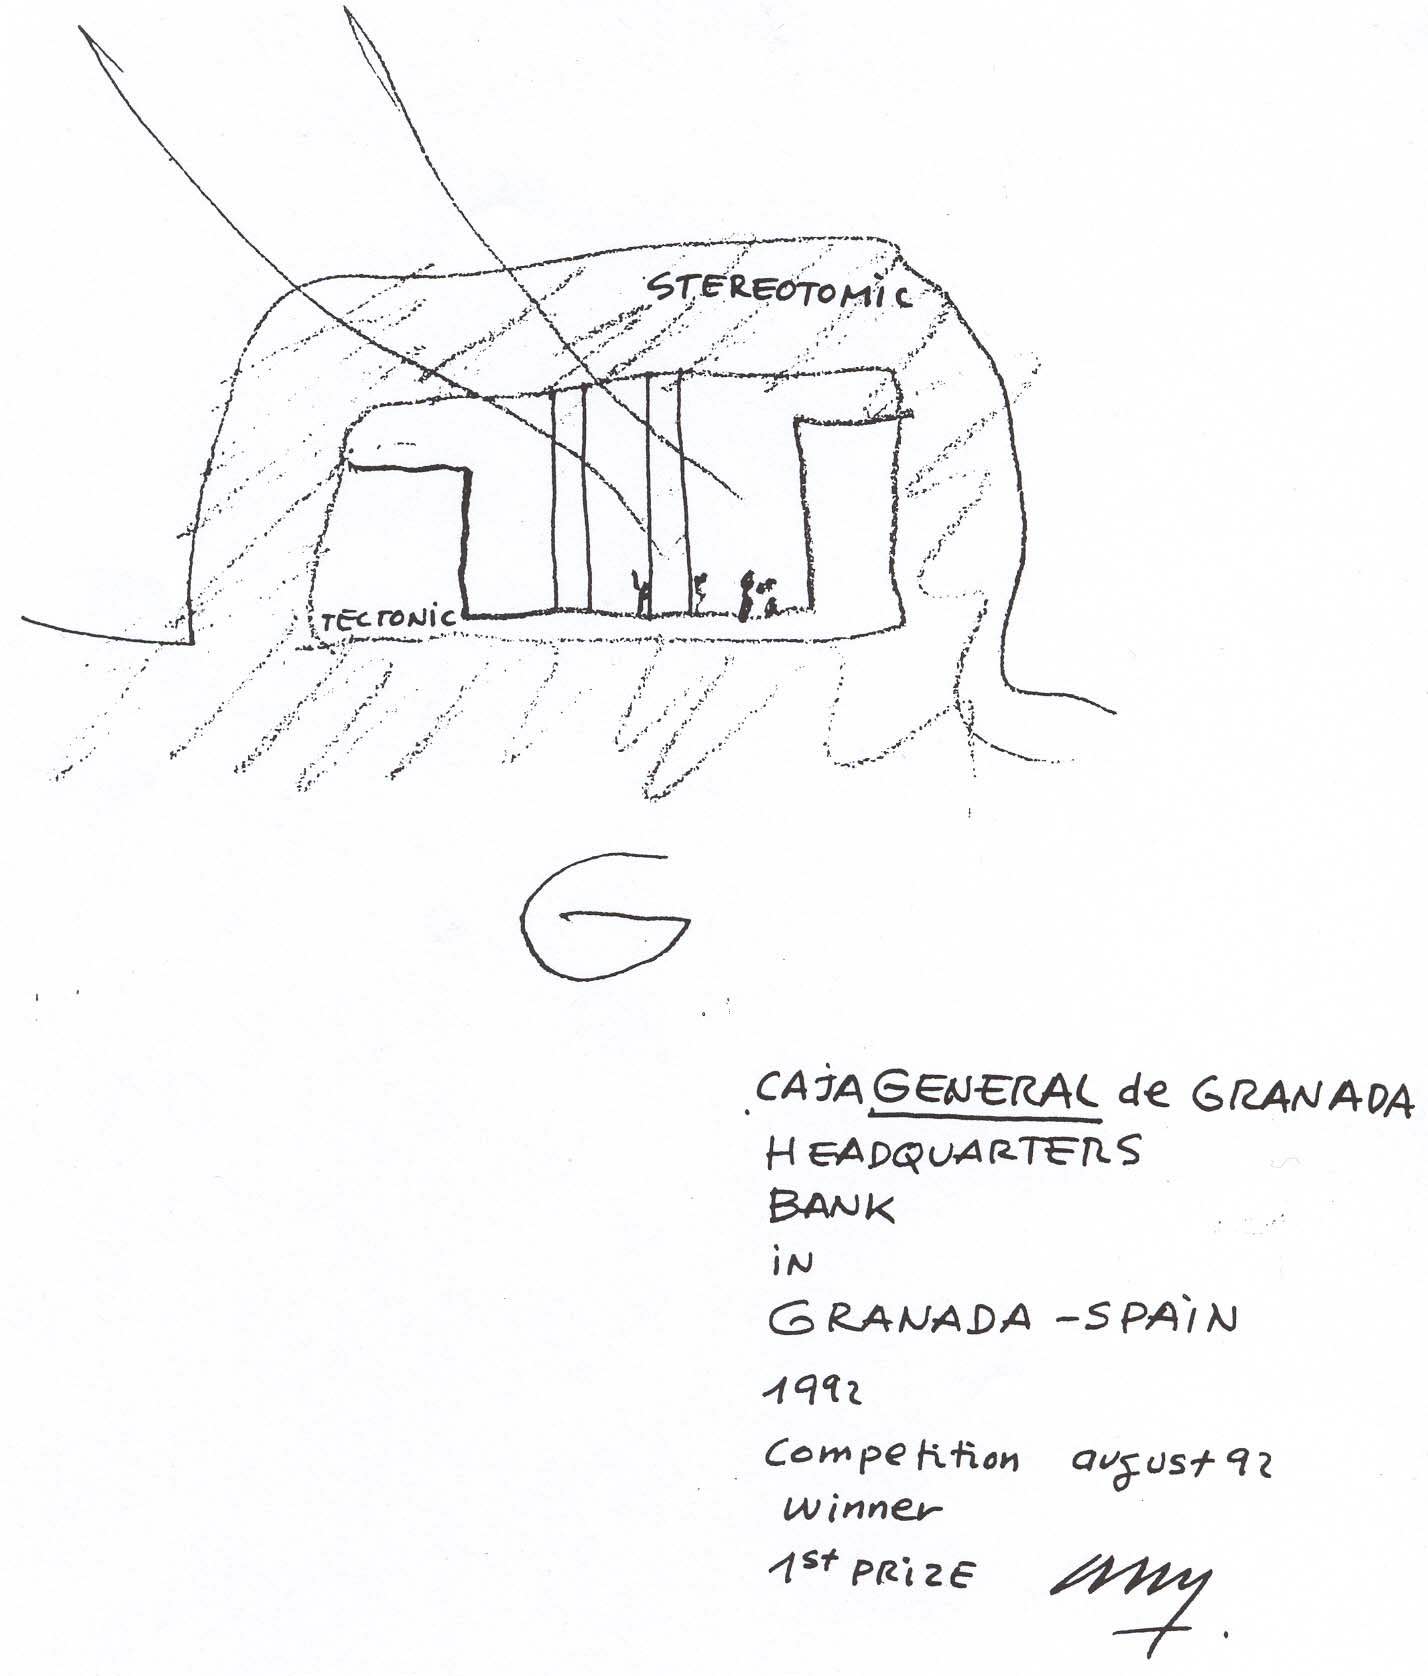 STEREOTOMiC
TECTONiC
G
CAjA GENERAL de GRANADA
HEADQUARTERS
BANK
iN
GRANADA - SPAiN
1992
Competition august 92
winner
1st PRiZE